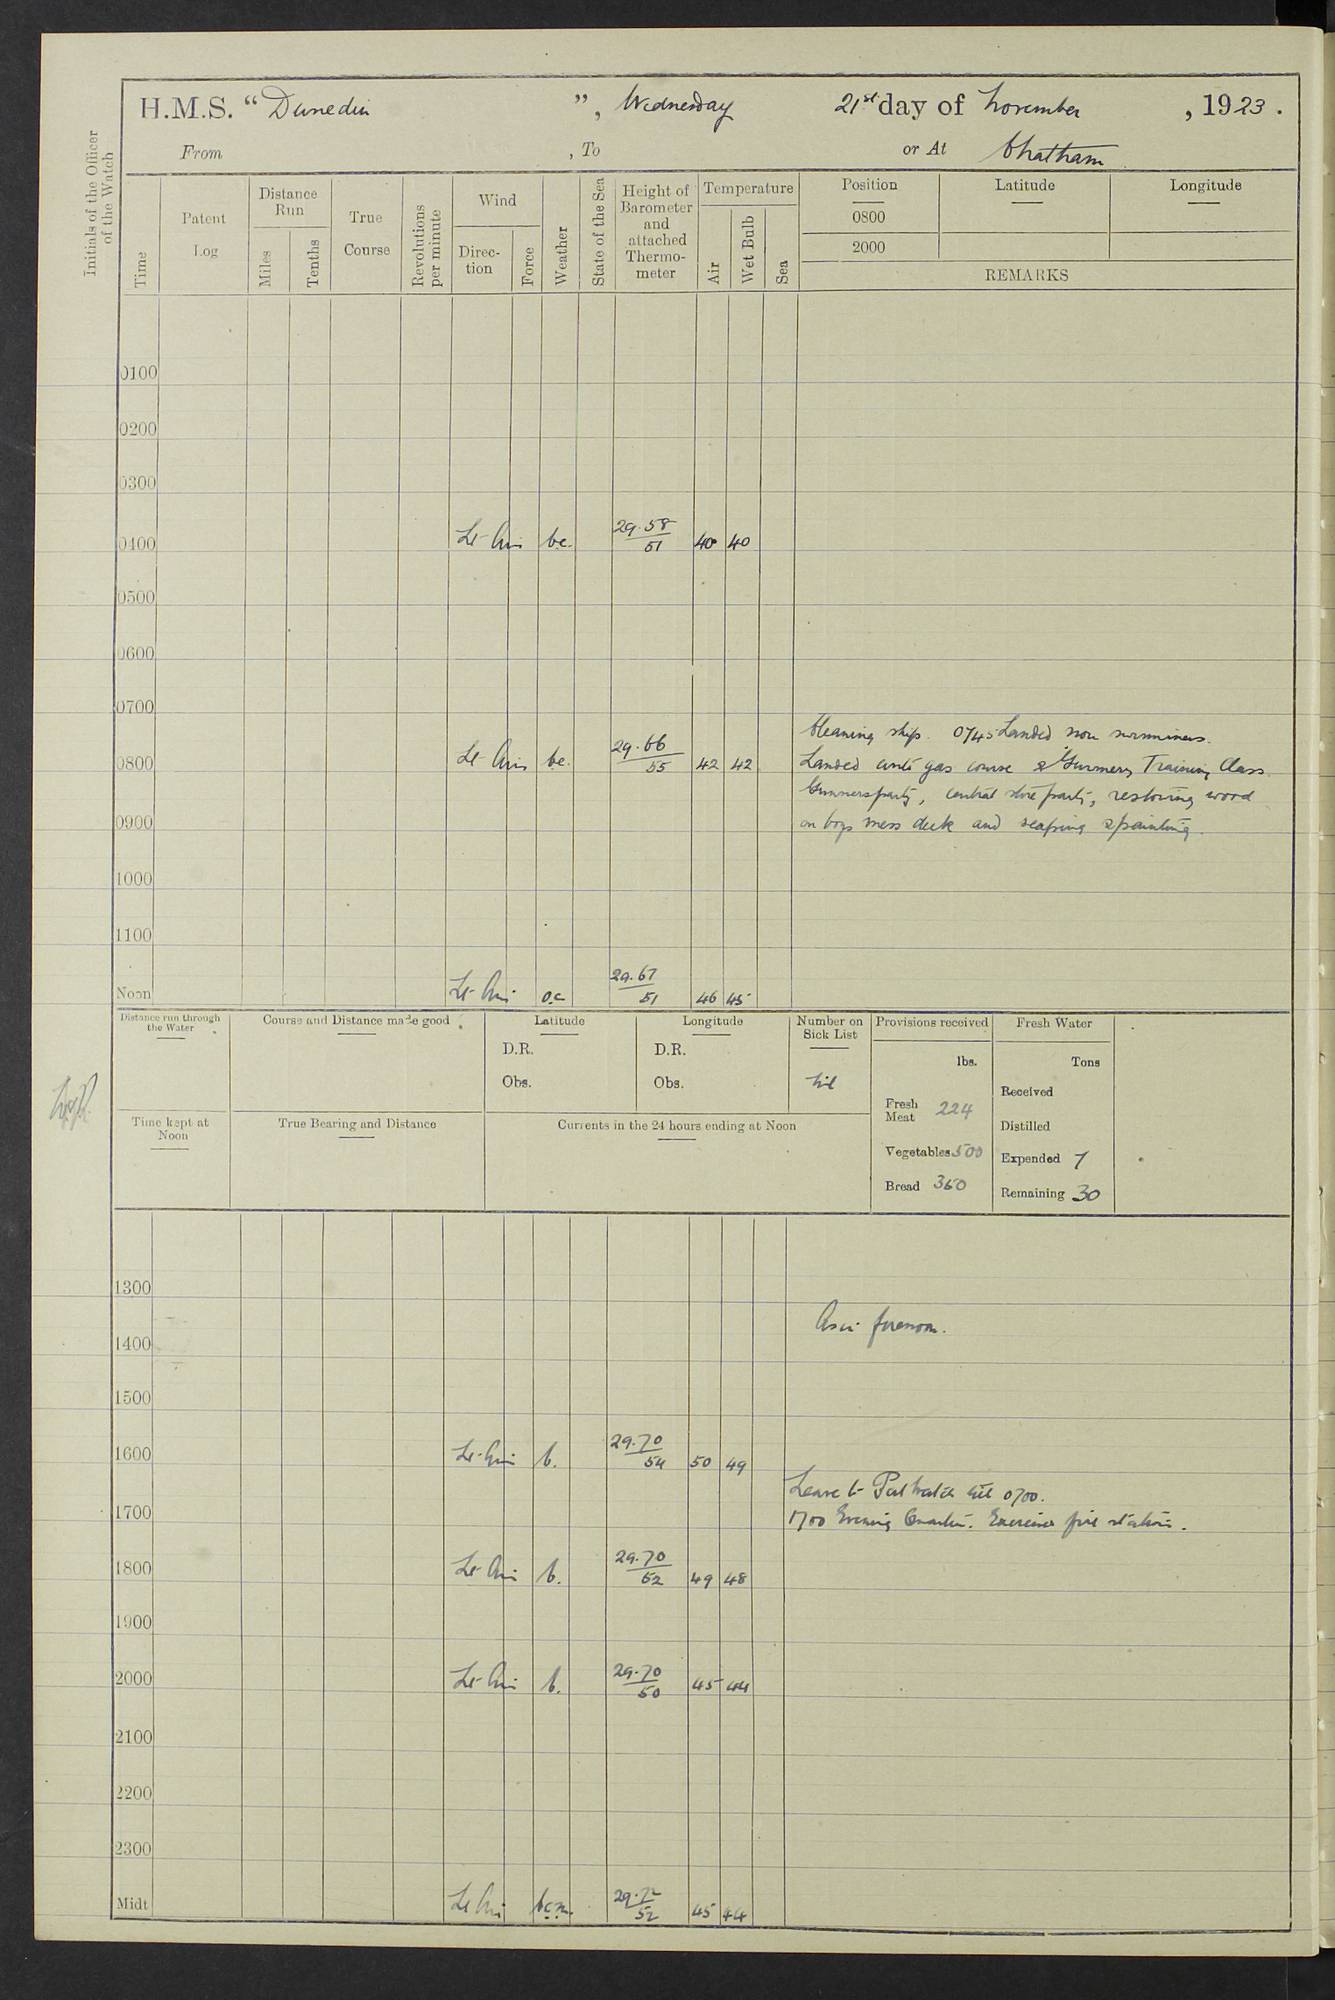 H.M.S. “Dunedin”, Wednesday 21st day of November, 1923.
From , To or At Chatham
Initials of the Officer of the Watch
Time
Patent Log
Distance Run
Miles
Tenths
True Course
Revolutions per minute
Wind
Direction
Force
Weather
State of the Sea
Height of Barometer and attached Thermometer
Temperature
Air
Wet Bulb
Sea
Position
Latitude
Longitude
0800
2000
REMARKS
0100
0200
0300
0400 Lt Airs bc. 29.58 51 40 40
0500
0600
0700
Cleaning ship. 0745 Landed non swimmers.
0800 Lt Airs bc. 29.66 55 42 42 Landed anti gas course & Gunnery Training Class.
Gunners party, central store party, restoring wood
0900 on boys mess deck and scraping & painting.
1000
1100
Noon Lt Airs oc 29.67 51 46 45
Distance run through the Water
Course and Distance made good
Latitude
D.R.
Obs.
Longitude
D.R.
Obs.
Number on Sick List
Nil
Provisions received
lbs.
Fresh Meat 224
Vegetables 500
Bread 360
Fresh Water
Tons
Received
Distilled
Expended 7
Remaining 30
Time kept at Noon
True Bearing and Distance
Currents in the 24 hours ending at Noon
1300
As in forenoon.
1400
1500
1600 Lt Airs b. 29.70 54 50 49
Leave to Port Watch till 0700.
1700 1700 Evening Quarters. Exercised fire stations.
1800 Lt Airs b. 29.70 52 49 48
1900
2000 Lt Airs b. 29.70 50 45 44
2100
2200
2300
Midt Lt Airs bcm. 29.72 52 45 44